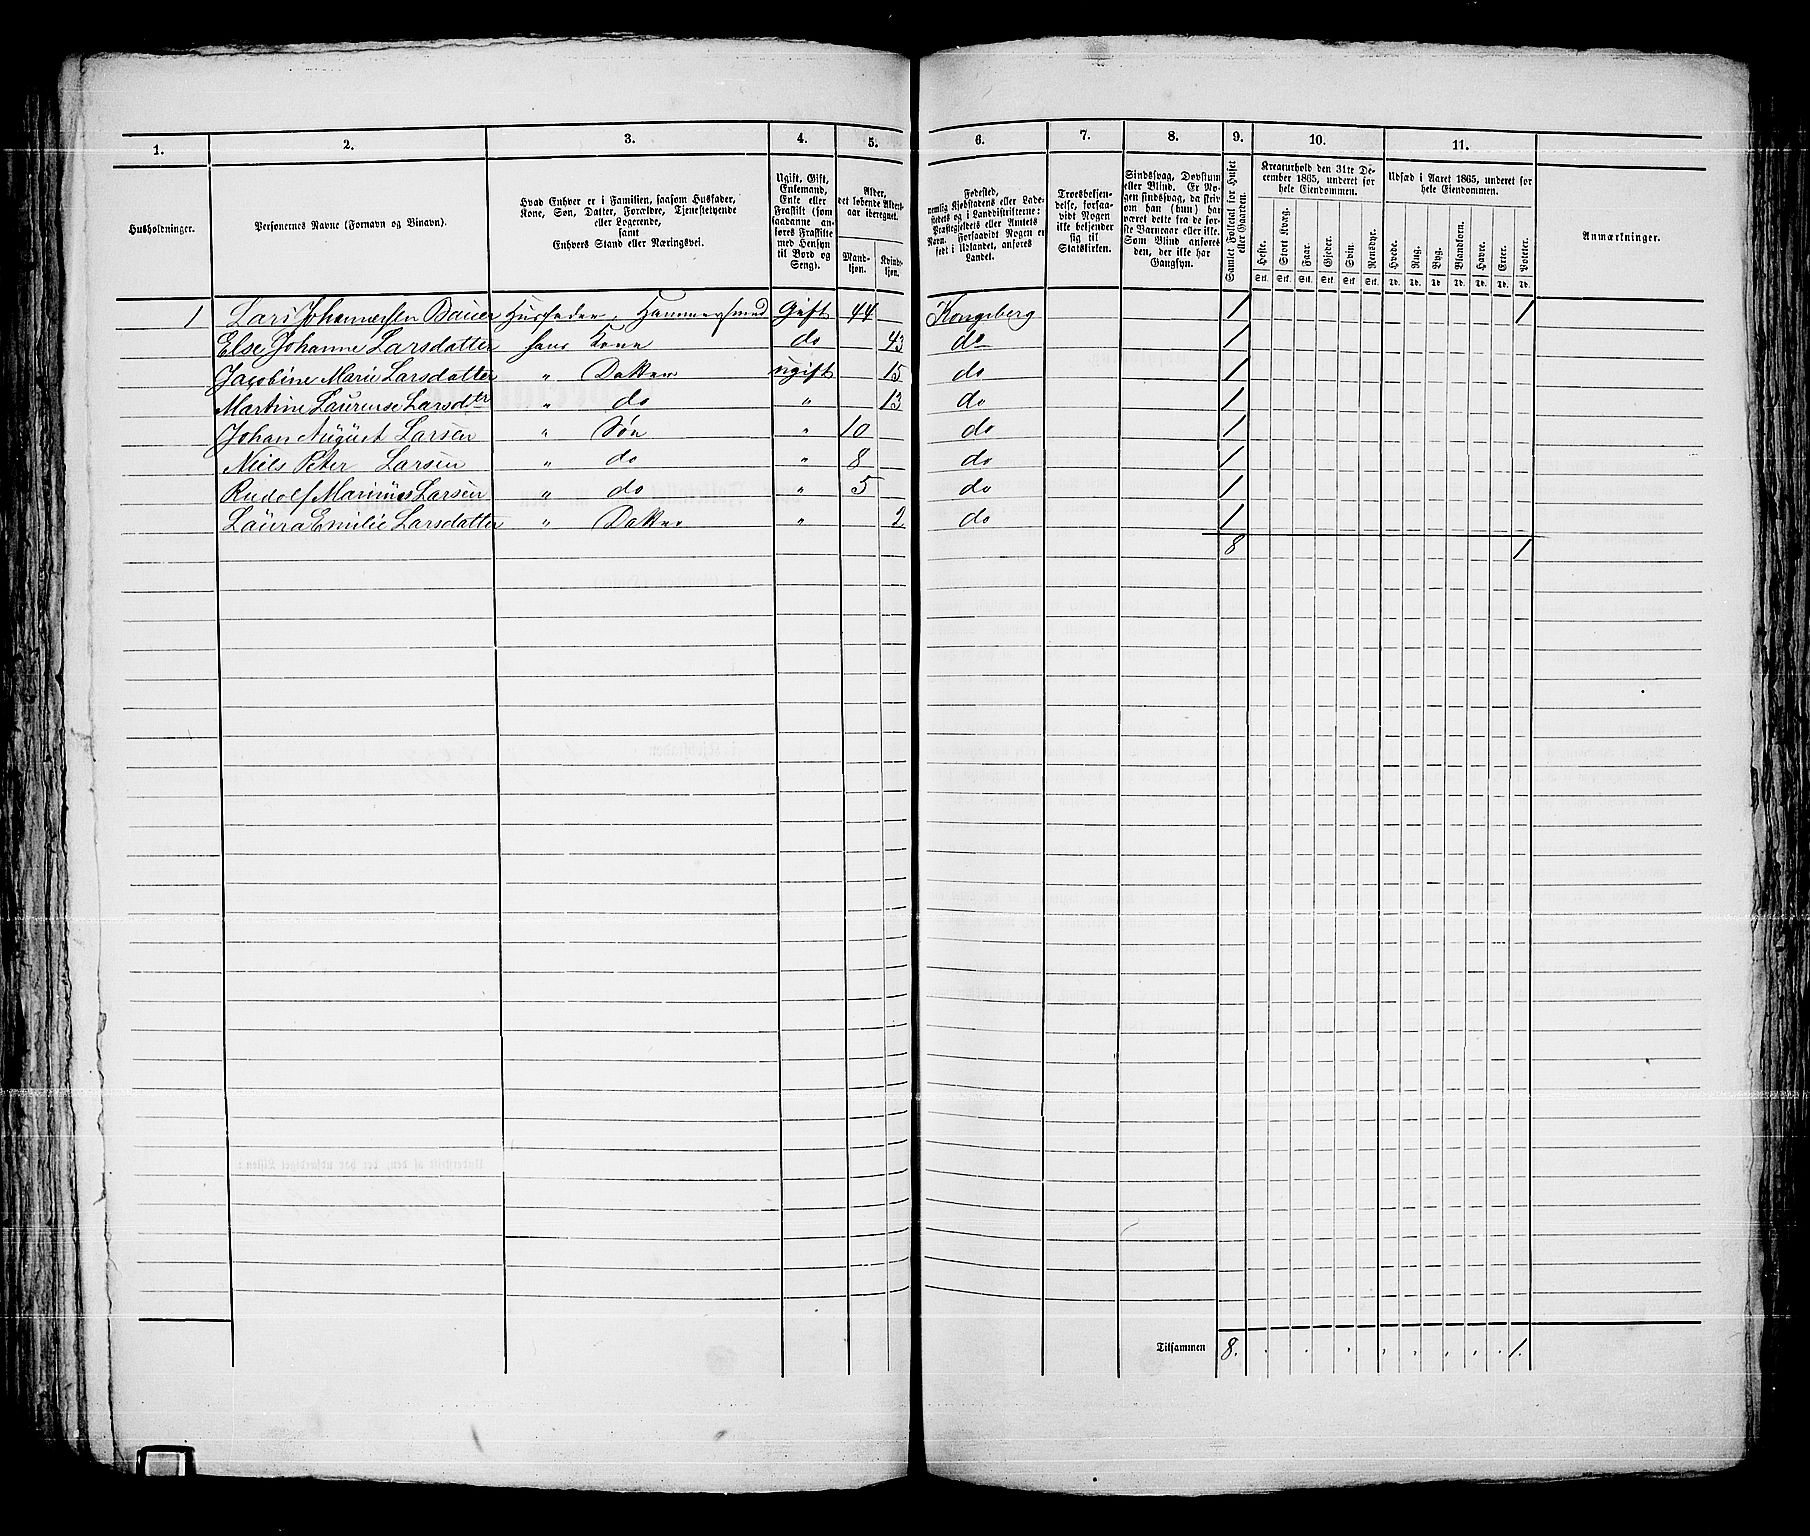 1. 2. 3. 4. 5. 6. 7. 8. 9. 10. 11.
Husholdninger.
Personernes Navne (Fornavn og Binavn).
Hvad Enhver er i Familien, saasom Husfader,
Kone, Søn, Datter, Forældre, Tjenestetyende
eller Logerende,
samt
Enhvers Stand eller Næringsvei.
Ugift, Gift,
Enkemand,
Enke eller
Fraskilt (som
saadanne an-
føres Fraskilte
med Hensyn
til Bord og
Seng).
Alder,
det løbende Alders-
aar iberegnet.
Mand-
kjøn.
Kvind-
kjøn.
Fødested,
nemlig Kjøbstadens eller Lade-
stedets og i Landdistrikterne:
Præstegjeldets eller Amtets
Navn. Forsaavidt Nogen er
født i Udlandet, anføres
Landet.
Troesbekjen-
delse, forsaa-
vidt Nogen
ikke bekjender
sig til
Statskirken.
Sindssvag, Døvstum
eller Blind. Er No-
gen sindssvag, da skriv
om han (hun) har
været dette fra de før-
ste Barneaar eller ikke.
Som Blind anføres
den, der ikke har
Gangsyn.
Samlet Folketal for Huset
eller Gaarden.
Kreaturhold den 31te De-
cember 1865, underet for
hele Eiendommen.
Heste. Stort Kvæg. Faar. Gjeder. Svin. Rensdyr.
Stk. Stk. Stk. Stk. Stk. Stk.
Udsæd i Aaret 1865, underet for
hele Eiendommen.
Hvede. Rug. Byg. Blandkorn. Havre. Erter. Poteter.
Td. Td. Td. Td. Td. Td. Td.
Anmærkninger.
1 Lars Johannessen Bauer Husfader, Hammersmed Gift 44 Kongsberg 1 1
Else Johanne Larsdatter hans Kone do 43 do 1
Jacobine Marie Larsdatter " Datter ugift 15 do 1
Martine Laurense Larsdtr " do " 13 do 1
Johan August Larsen " Søn " 10 do 1
Niels Peter Larsen " do " 8 do 1
Rudolf Marinus Larsen " do " 5 do 1
Laura Emilie Larsdatter " Datter " 2 do 1
8 1
Tilsammen 8. 1.